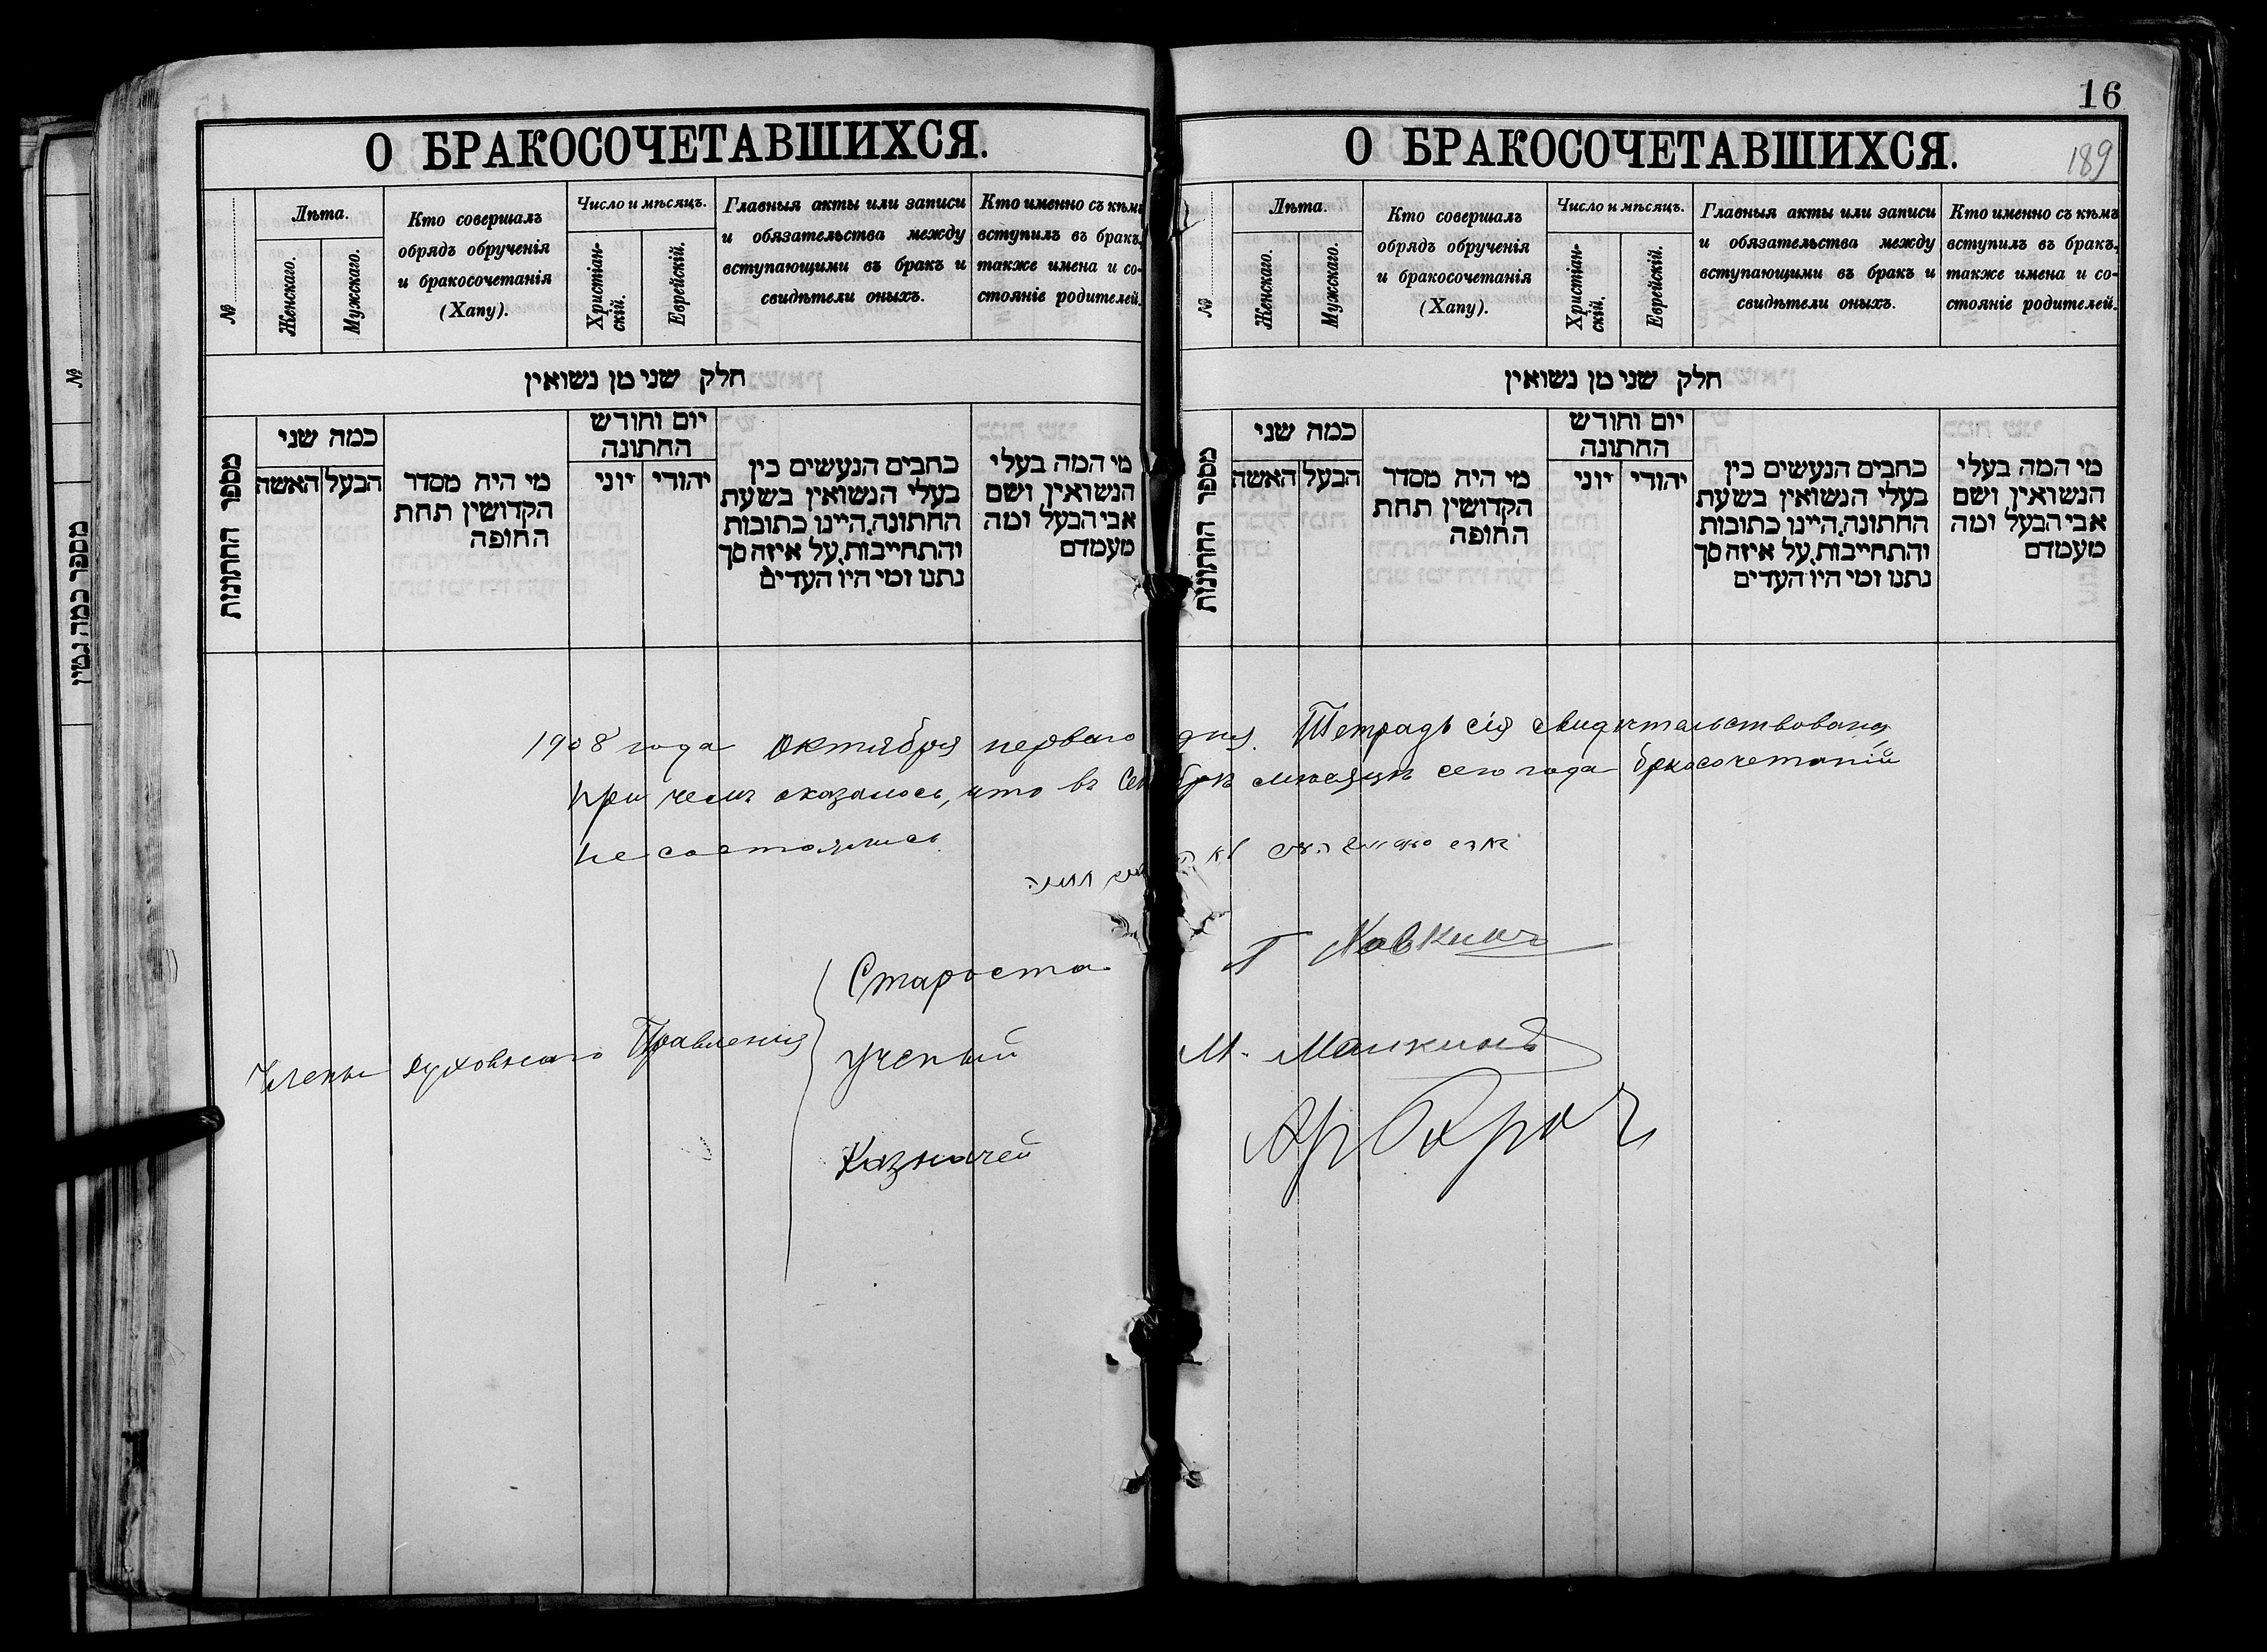 16
189
О БРАКОСОЧЕТАВШИХСЯ.
№
Лѣта.
Женскаго.
Мужскаго.
Кто совершалъ
обрядъ обрученія
и бракосочетанія
(Хапу).
Число и мѣсяцъ.
Христіан-
скій.
Еврейскій.
Главныя акты или записи
и обязательства между
вступающими въ бракъ и
свидѣтели оныхъ.
Кто именно съ кѣмъ
вступилъ въ бракъ,
также имена и со-
стояніе родителей.
חלק שני מן נשואין
מספר החתונות
כמה שני
הבעל
האשה
מי היה מסדר
הקדושין תחת
החופה
יום וחודש
החתונה
יהודי
יוני
כתבים הנעשים בין
בעלי הנשואין בשעת
החתונה, היינו כתובות
והתחייבות, על איזה סך
נתנו ומי היו העדים
מי המה בעלי
הנשואין ושם
אבי הבעל ומה
מעמדם
О БРАКОСОЧЕТАВШИХСЯ.
№
Лѣта.
Женскаго.
Мужскаго.
Кто совершалъ
обрядъ обрученія
и бракосочетанія
(Хапу).
Число и мѣсяцъ.
Христіан-
скій.
Еврейскій.
Главныя акты или записи
и обязательства между
вступающими въ бракъ и
свидѣтели оныхъ.
Кто именно съ кѣмъ
вступилъ въ бракъ,
также имена и со-
стояніе родителей.
חלק שני מן נשואין
מספר החתונות
כמה שני
הבעל
האשה
מי היה מסדר
הקדושין תחת
החופה
יום וחודש
החתונה
יהודי
יוני
כתבים הנעשים בין
בעלי הנשואין בשעת
החתונה, היינו כתובות
והתחייבות, על איזה סך
נתנו ומי היו העדים
מי המה בעלי
הנשואין ושם
אבי הבעל ומה
מעמדם
1908 года Октября перваго дня. Тетрадь сія свидѣтельствована
при чемъ оказалось, что въ Сентябрѣ мѣсяцѣ сего года бракосочетаній
не состоялись.
Члены Духовнаго Правленія
Староста
Ученый М.
Казначей
№
מספר כמה גטין